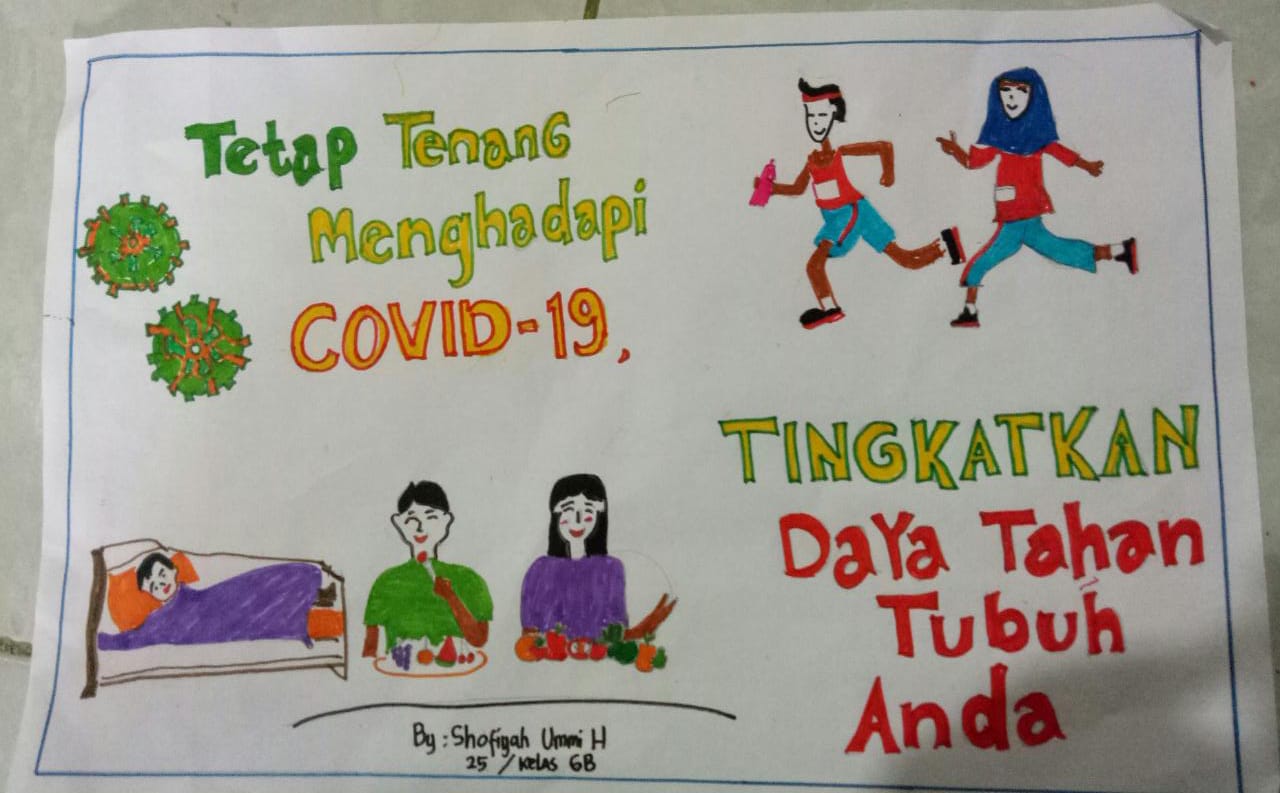 Tetap Tenang
Menghadapi
COVID-19,
TINGKATKAN
Daya Tahan
Tubuh
Anda
By : Shofiyah Ummi H
25 / Kelas 6B